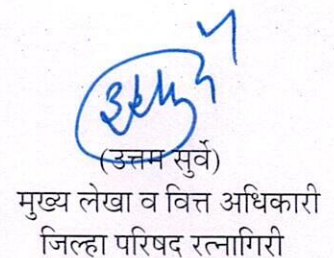 (उत्तम सुर्वे)
मुख्य लेखा व वित्त अधिकारी
जिल्हा परिषद रत्नागिरी